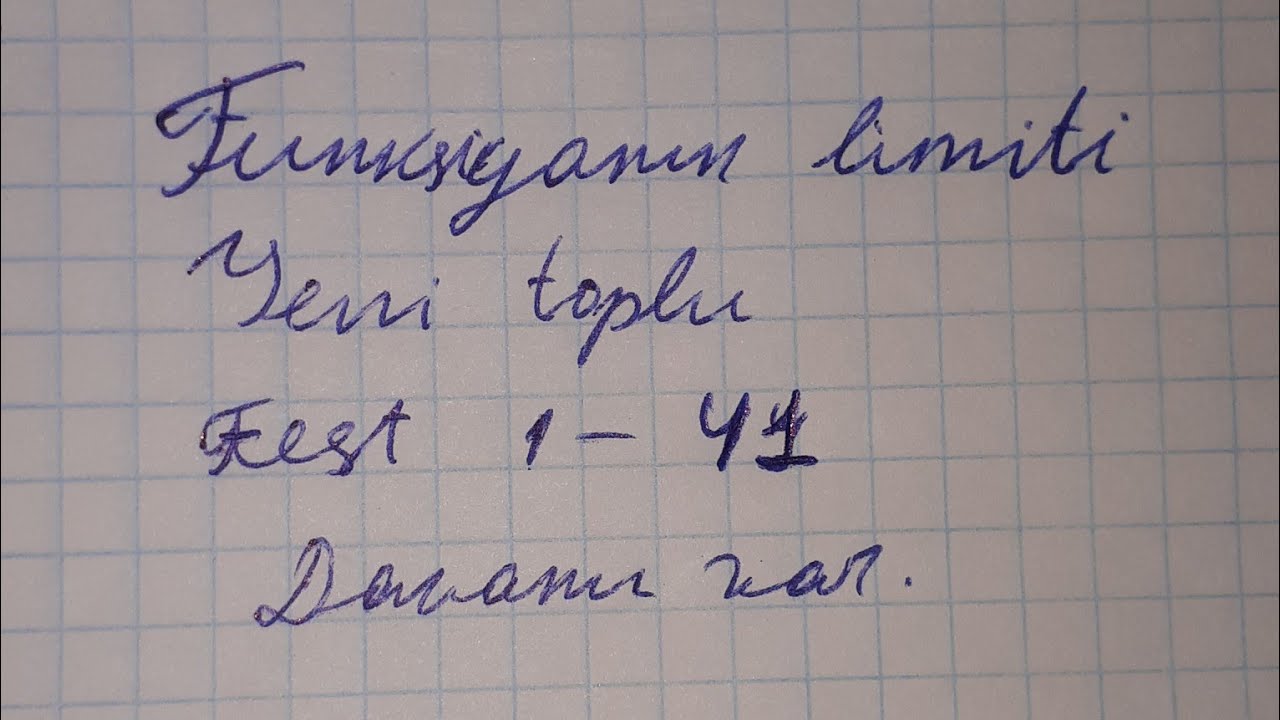 Funksiyanın limiti
Yeni toplu
Test 1 – 41
Davamı var.